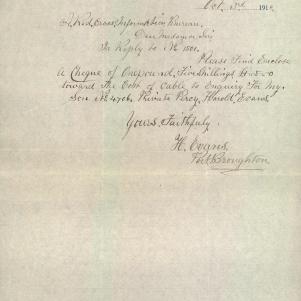 Oct. 3rd 1918
Red Cross Information Bureau,
Dear Madam or Sir
In Reply to No 1501.
Please Find Enclose
A Cheque of One pound, Five Shillings £1-5-0
toward The Cost of Cable to Enquiry For my
Son No 4706. Private Percy, Harold, Evans.
Yours, Faithfully.
H. Evans,
Port Broughton